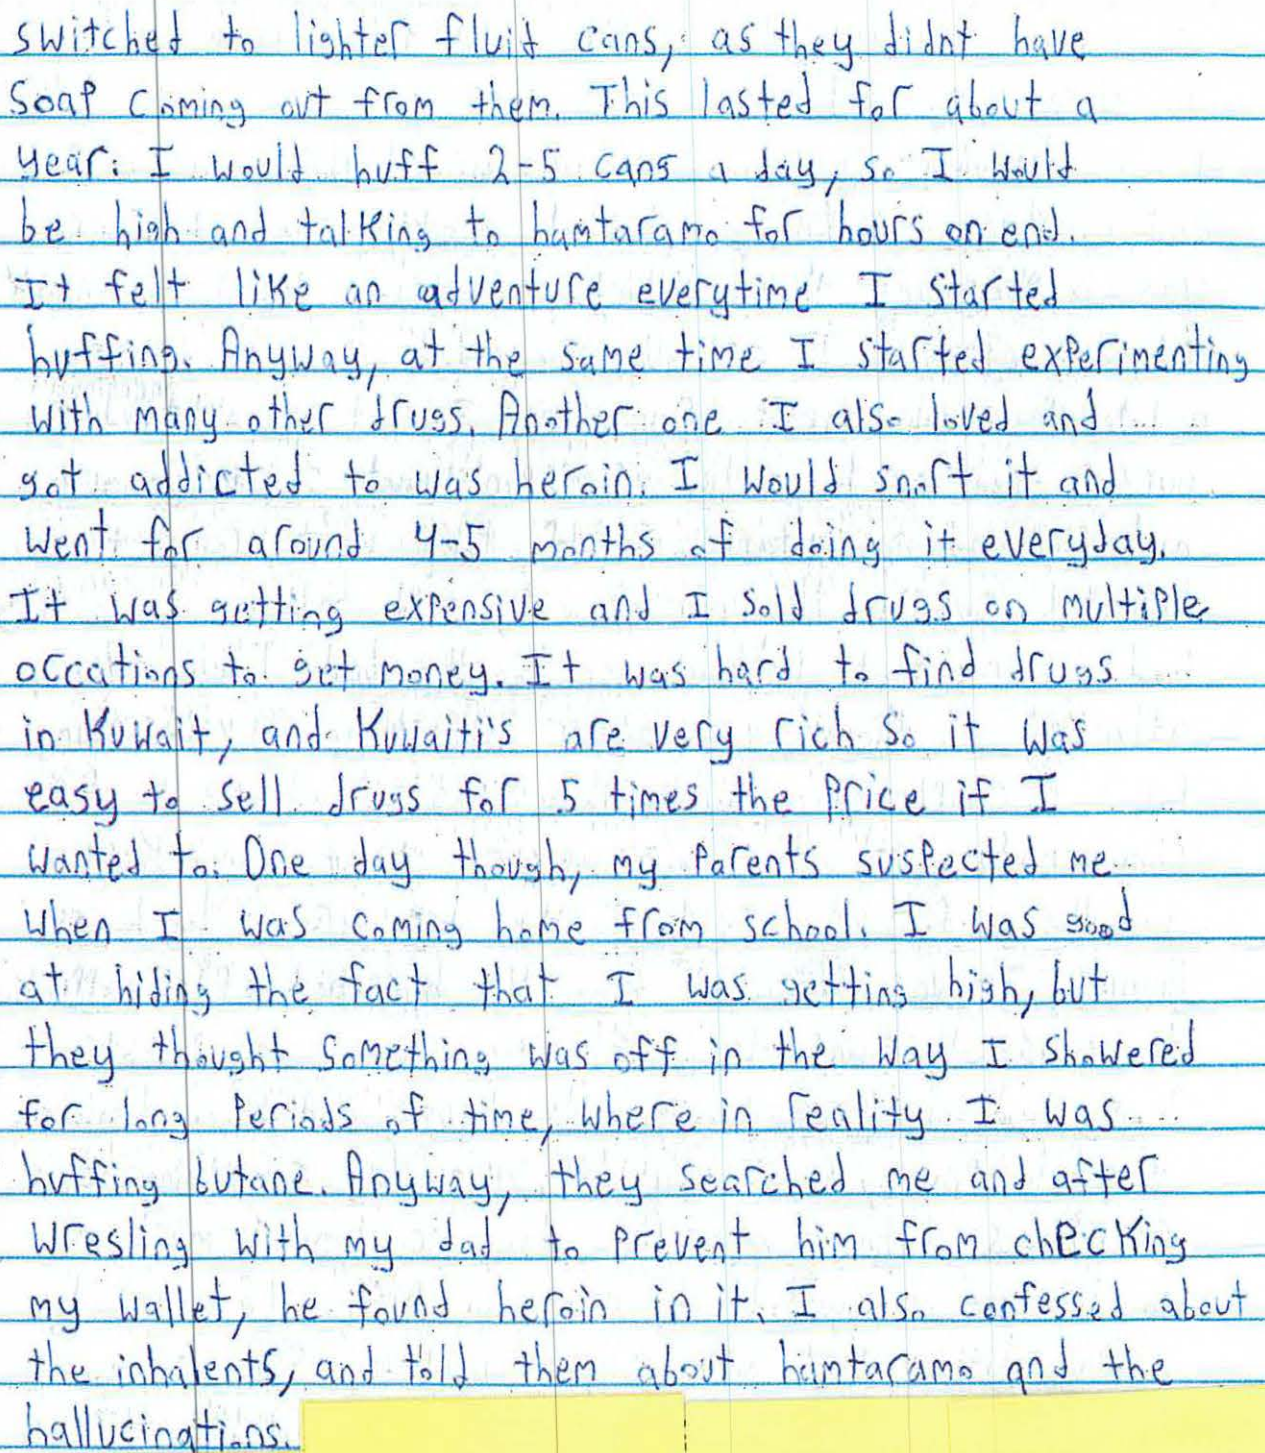 switched to lighter fluid cans, as they didnt have
soap coming out from them. This lasted for about a
year. I would huff 2-5 cans a day, so I would
be high and talking to hamtaramo for hours on end.
It felt like an adventure everytime I started
huffing. Anyway, at the same time I started experimenting
with many other drugs. Another one I also loved and
got addicted to was heroin. I would snort it and
went for around 4-5 months of doing it everyday.
It was getting expensive and I sold drugs on multiple
occations to get money. It was hard to find drugs
in Kuwait, and Kuwaiti's are very rich so it was
easy to sell drugs for 5 times the price if I
wanted to. One day though, my parents suspected me
when I was coming home from school. I was good
at hiding the fact that I was getting high, but
they thought something was off in the way I showered
for long periods of time, where in reality I was
huffing butane. Anyway, they searched me and after
wresling with my dad to prevent him from checking
my wallet, he found heroin in it. I also confessed about
the inhalents, and told them about hamtaramo and the
hallucinations.